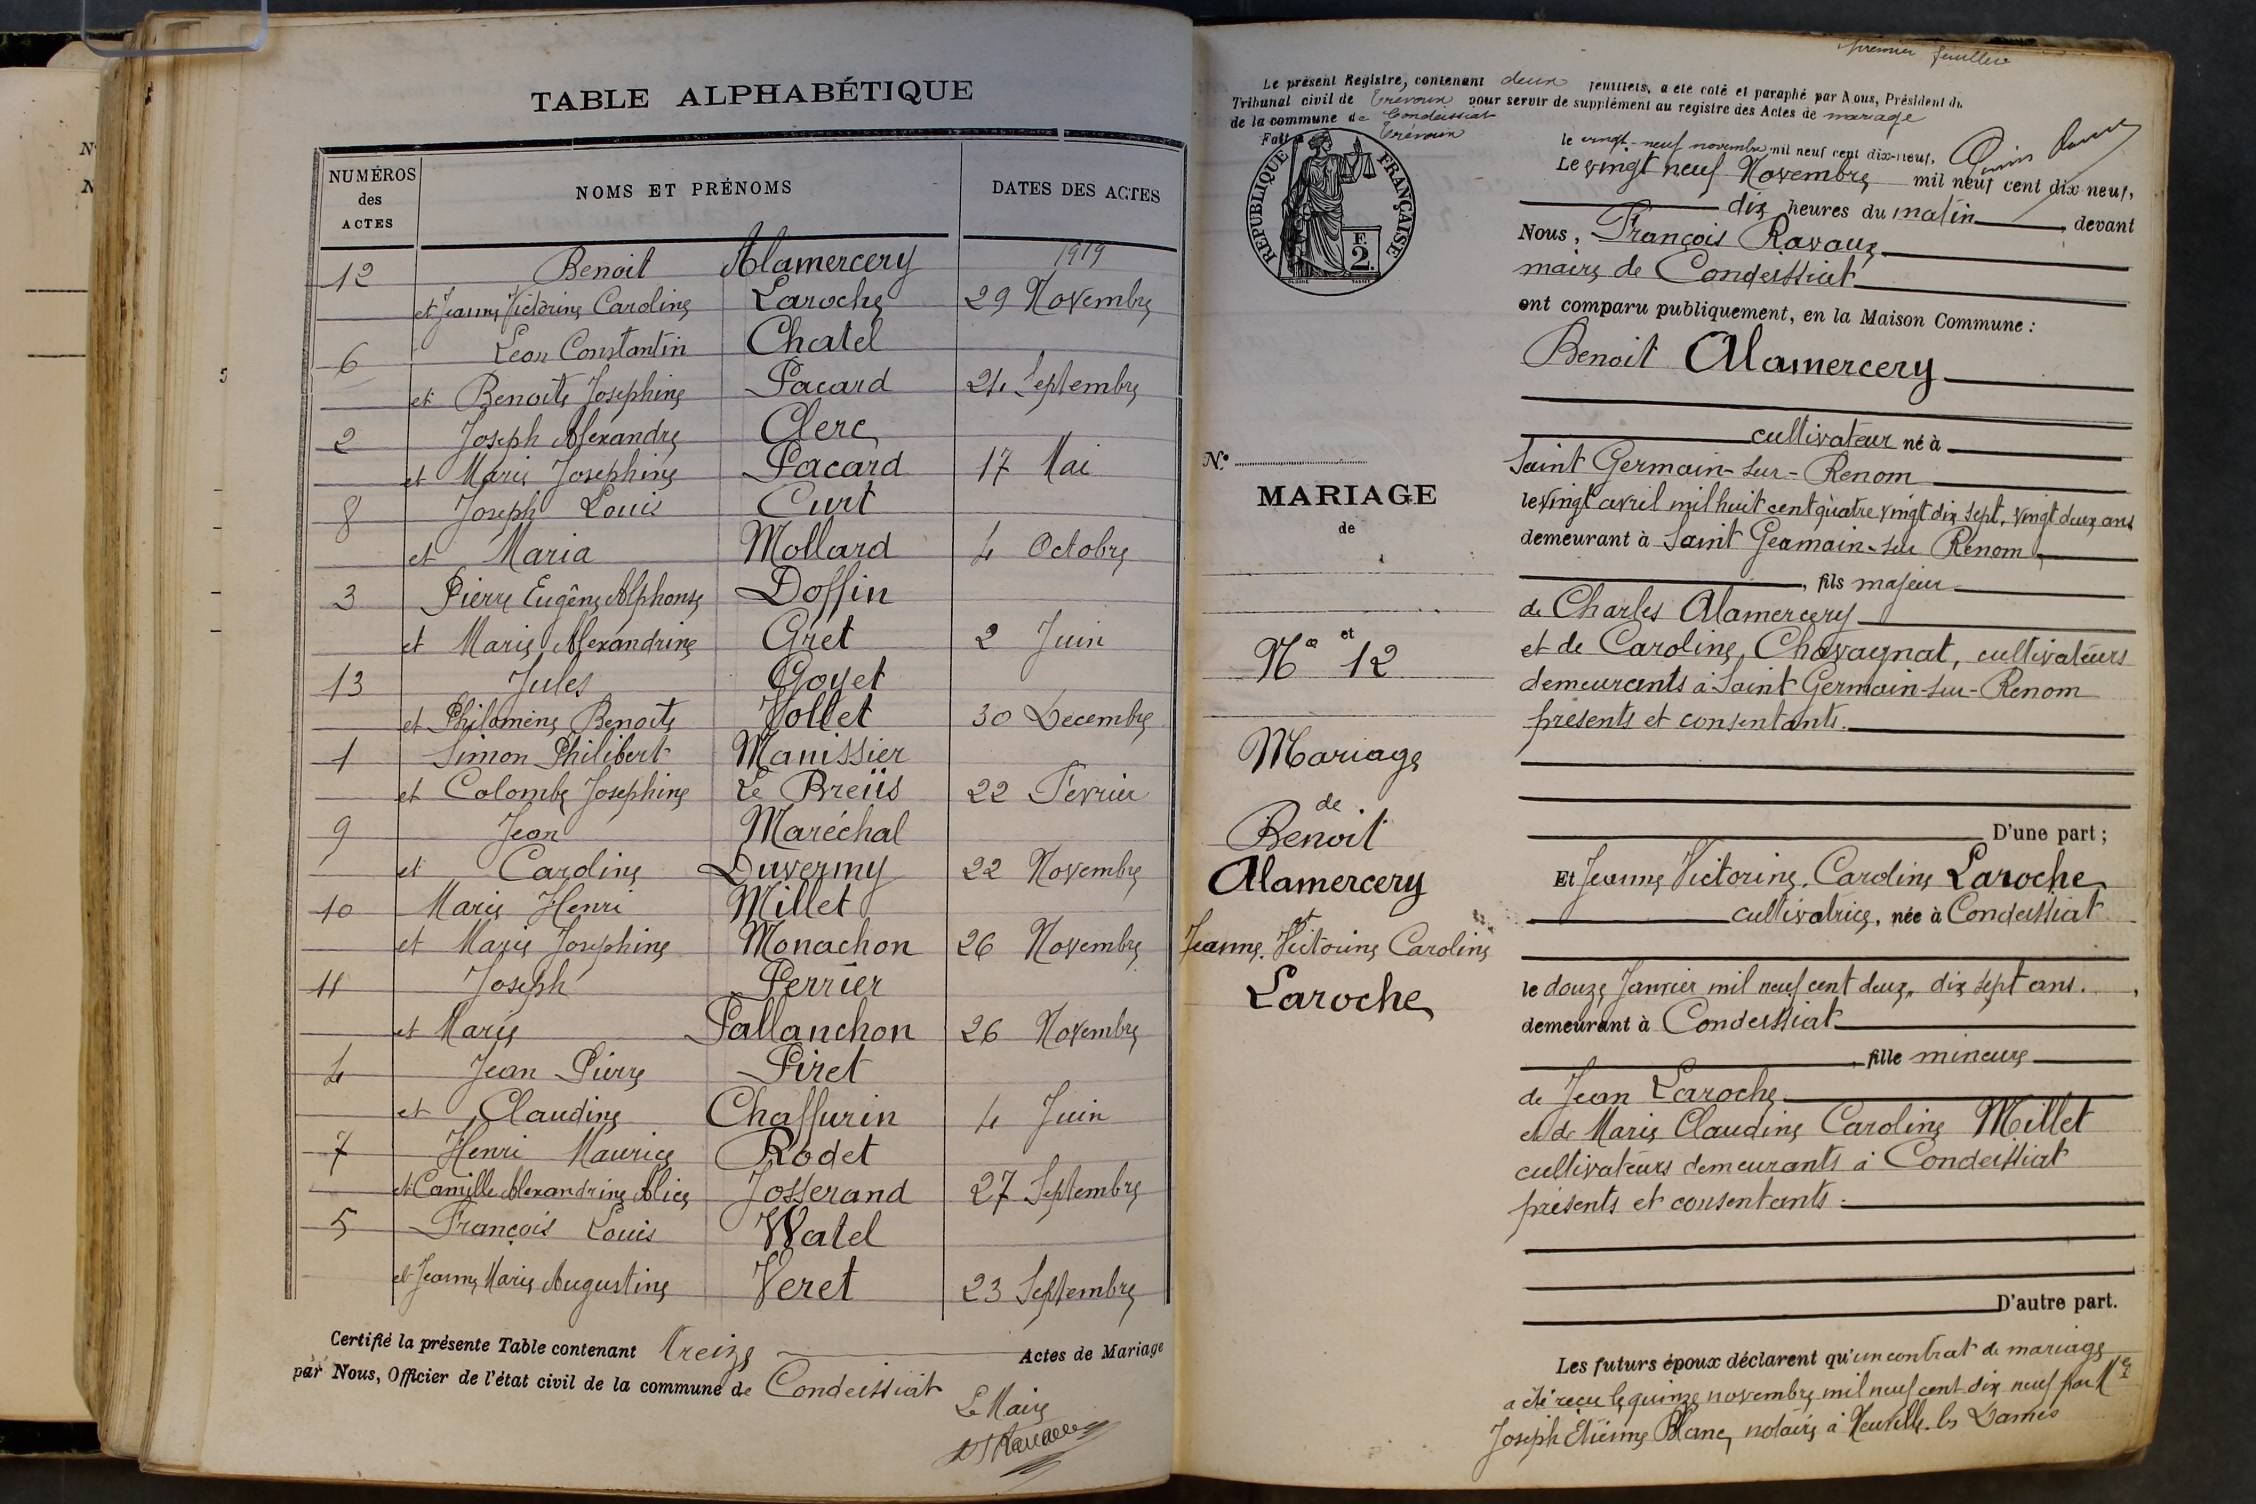 TABLE ALPHABÉTIQUE
NUMÉROS des ACTES
NOMS ET PRÉNOMS
DATES DES ACTES
12 Benoit Alamercery 1919
et Jeanne Victorine Caroline Laroche 29 Novembre
6 Léon Constantin Chatel
et Benoite Josephine Pacard 24 Septembre
2 Joseph Alexandre Clerc
et Marie Josephine Pacard 17 Mai
8 Joseph Louis Curt
et Maria Mollard 4 Octobre
3 Pierre Eugène Alphonse Doffin
et Marie Alexandrine Gret 2 Juin
13 Jules Goyet
et Philomène Benoite Vollet 30 Décembre
1 Simon Philibert Manissier
et Colombe Josephine Le Breüs 22 Février
9 Jean Maréchal
et Caroline Duvermy 22 Novembre
10 Marie Henri Millet
et Marie Josephine Monachon 26 Novembre
11 Joseph Perrier
et Marie Pallanchon 26 Novembre
4 Jean Pierre Piret
et Claudine Chaffurin 4 Juin
7 Henri Maurice Rodet
et Camille Alexandrine Alice Josserand 27 Septembre
5 François Louis Watel
et Jeanne Marie Augustine Veret 23 Septembre
Certifié la présente Table contenant treize Actes de Mariage
par Nous, Officier de l'état civil de la commune de Condeissiat
Le Maire
premier feuillet
Le présent Registre, contenant deux feuillets, a été coté et paraphé par Nous, Président du
Tribunal civil de Trévoux pour servir de supplément au registre des Actes de mariage
de la commune de Condeissiat
Fait à Trévoux
le vingt-neuf novembre mil neuf cent dix-neuf.
RÉPUBLIQUE FRANÇAISE
F. 2.
Le vingt neuf Novembre mil neuf cent dix neuf,
dix heures du matin, devant
Nous, François Ravaux
maire de Condeissiat
ont comparu publiquement, en la Maison Commune :
Benoit Alamercery
cultivateur né à
Saint Germain-sur-Renom
le vingt avril mil huit cent quatre vingt dix sept, vingt deux ans
demeurant à Saint Geamain-sur Renom
, fils majeur
de Charles Alamercery
et de Caroline Chavagnat, cultivateurs
demeurants à Saint Germain-sur-Renom
présents et consentants.
D'une part ;
Et Jeanne Victorine Caroline Laroche
cultivatrice, née à Condeissiat
le douze Janvier mil neuf cent deux, dix sept ans.
demeurant à Condeissiat
, fille mineure
de Jean Laroche
et de Marie Claudine Caroline Millet
cultivateurs demeurants à Condeissiat
présents et consentants.
D'autre part.
Les futurs époux déclarent qu'un contrat de mariage
a été reçu le quinze novembre mil neuf cent dix neuf par Me
Joseph Etienne Blanc, notaire à Neuville les Dames
N°
MARIAGE
de
et
N° 12
Mariage
de
Benoit
Alamercery
et
Jeanne Victorine Caroline
Laroche